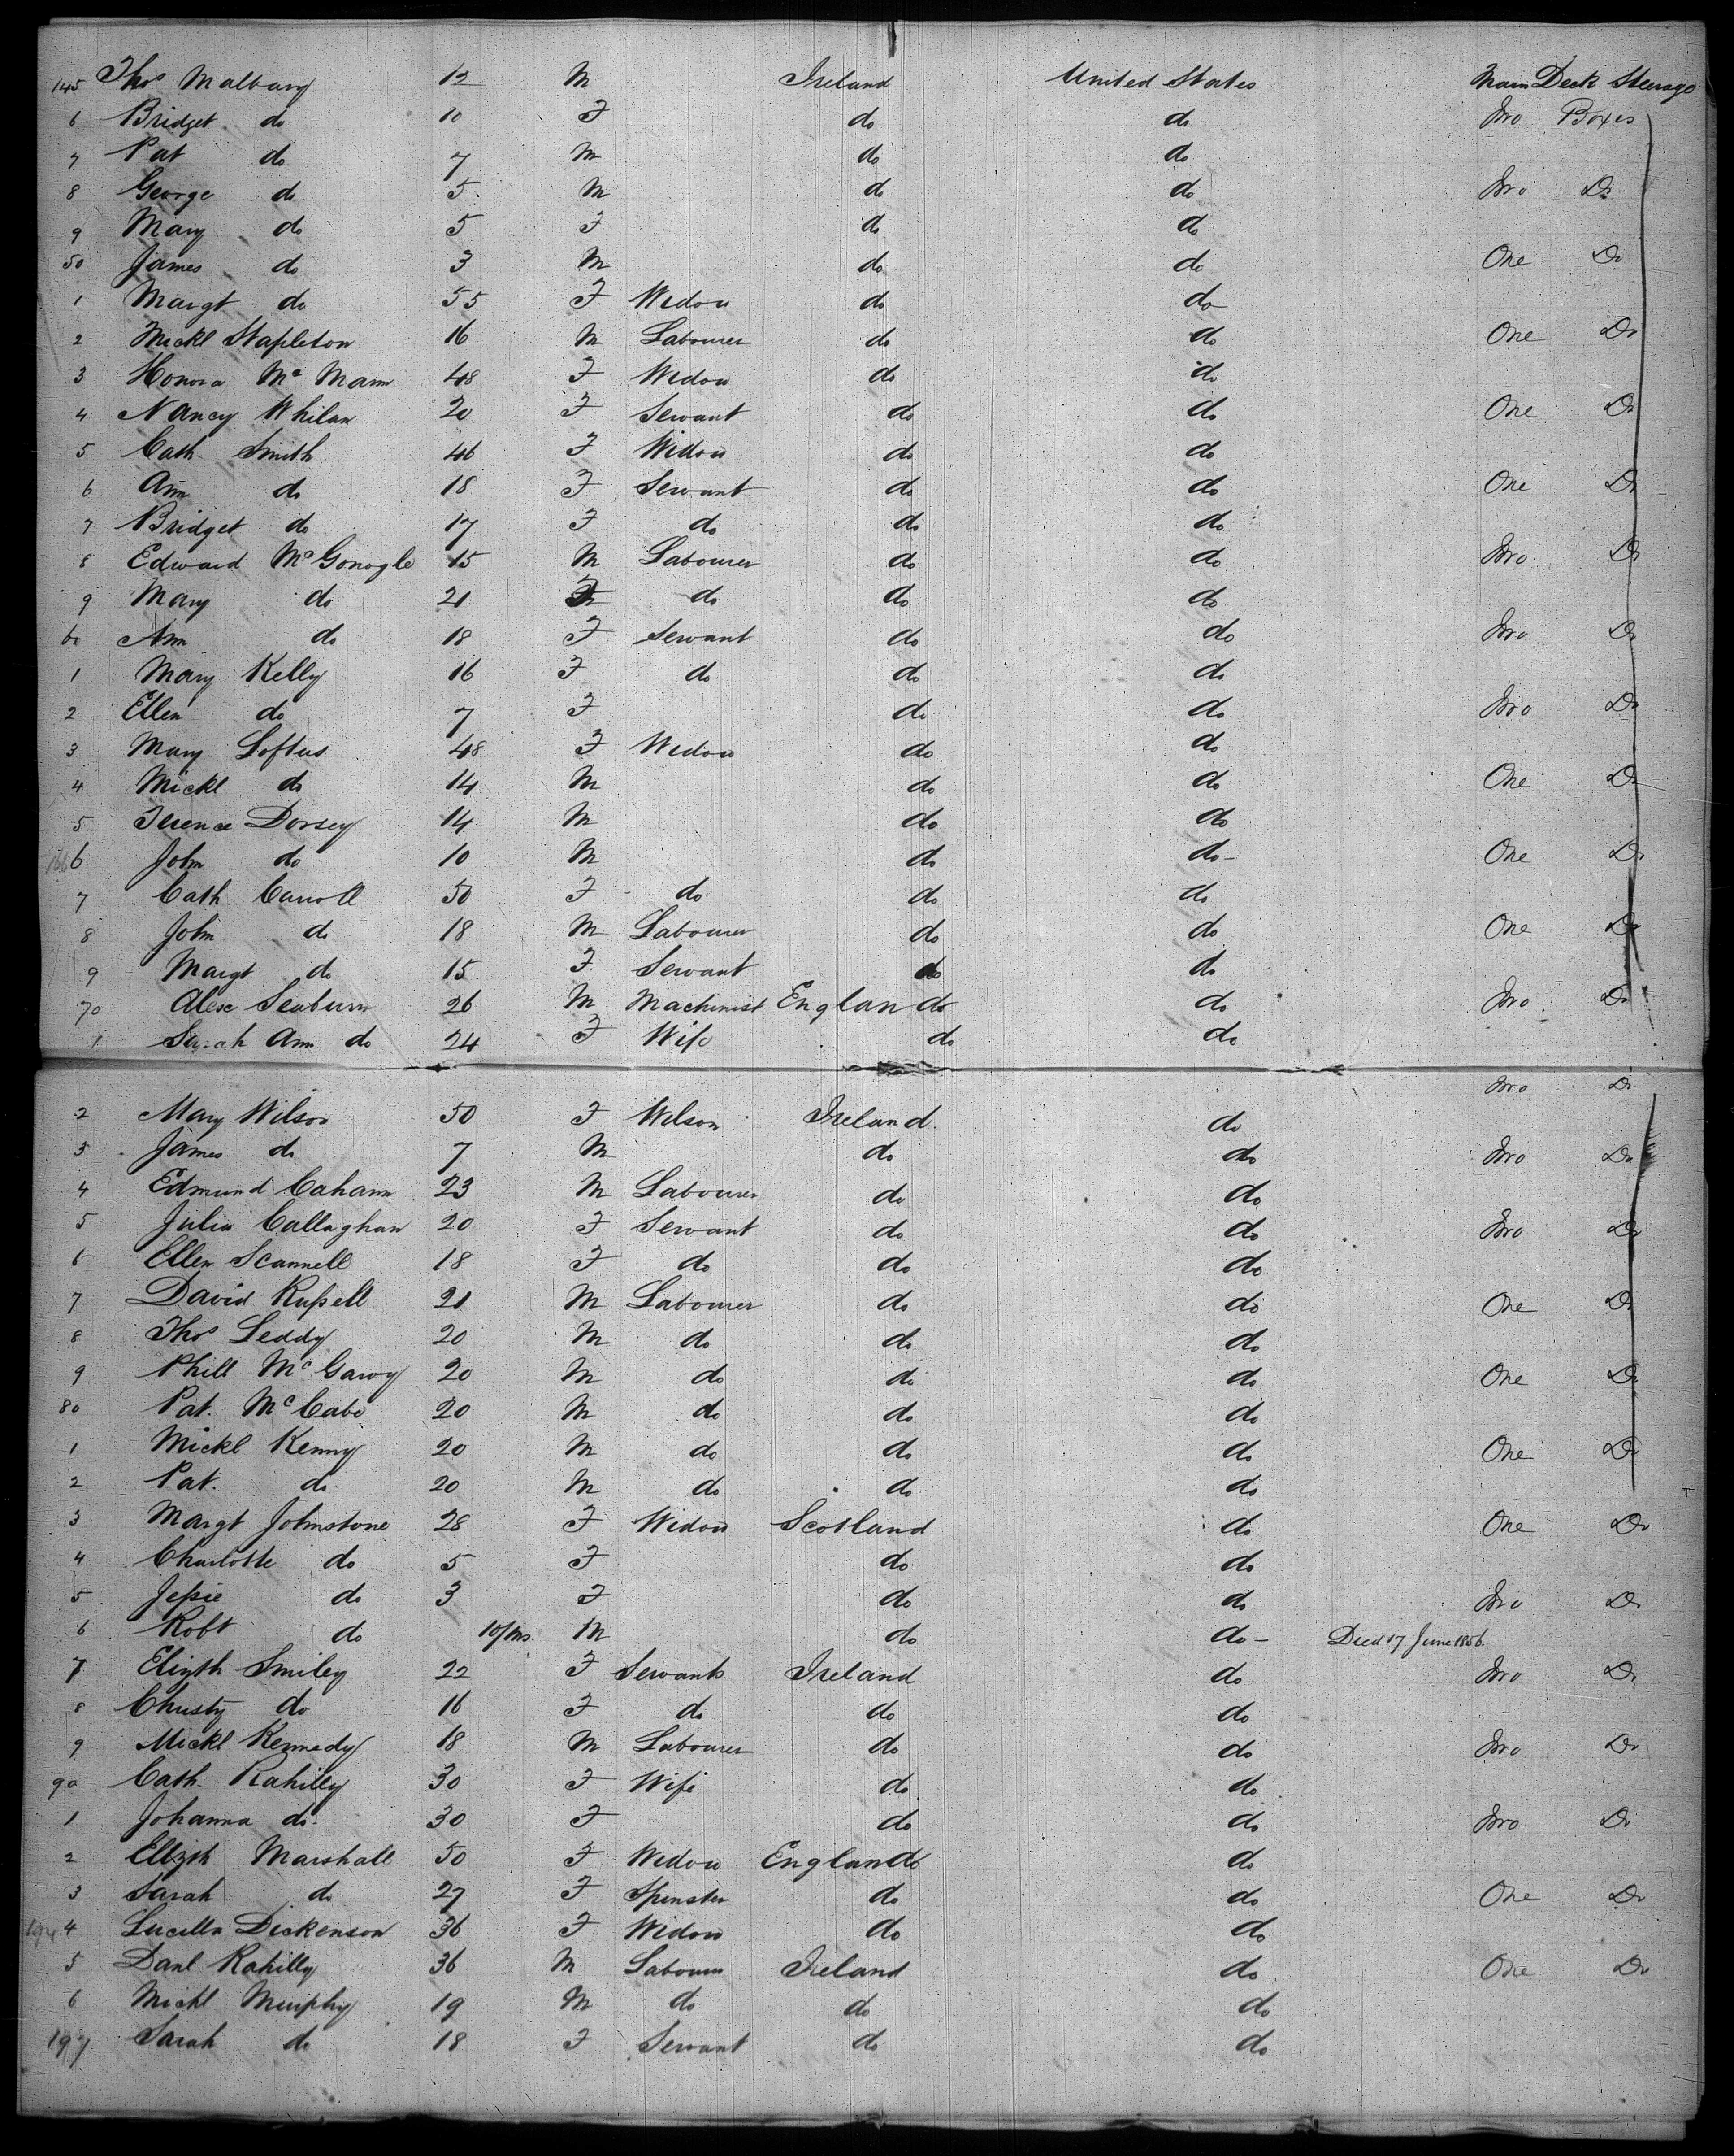 145 Thos Malbany 12 M Ireland United States Main Deck Steerage
6 Bridget do 10 F do do Two Boxes
7 Pat do 7 M do do
8 George do 5 M do do Two Do
9 Mary do 5 F do do
50 James do 3 M do do One Do
1 Margt do 55 F Widow do do
2 Mickl Stapleton 16 M Labourer do do One Do
3 Honora Mc Mann 48 F Widow do do
4 Nancy Whilan 20 F Servant do do One Do
5 Cath Smith 46 F Widow do do
6 Ann do 18 F Servant do do One Do
7 Bridget do 17 F do do do
8 Edward McGonogle 15 M Labourer do do Two Do
9 Mary do 21 F do do do
60 Ann do 18 F Servant do do Two Do
1 Mary Kelly 16 F do do do
2 Ellen do 7 F do do Two Do
3 Mary Loftus 48 F Widow do do
4 Mickl do 14 M do do One Do
5 Terence Dorsey 14 M do do
166 John do 10 M do do One Do
7 Cath Carroll 50 F do do do
8 John do 18 M Labourer do do One Do
9 Margt do 15 F Servant do do
70 Alexr Seaburn 26 M Machinist England do Two Do
1 Sarah Ann do 24 F Wife do do
Two Do
2 Mary Wilson 50 F Wilson Ireland do
3 James do 7 M do do Two Do
4 Edmund Cahann 23 M Labourer do do
5 Julia Callaghan 20 F Servant do do Two Do
6 Ellen Scannell 18 F do do do
7 David Russell 21 M Labourer do do One Do
8 Thos Leddy 20 M do do do
9 Phill McGarvy 20 M do do do One Do
80 Pat. McCabe 20 M do do do
1 Mickl Kenny 20 M do do do One Do
2 Pat. do 20 M do do do
3 Margt Johnstone 28 F Widow Scotland do One Do
4 Charlotte do 5 F do do
5 Jessie do 3 F do do Two Do
6 Robt do 10/ms. M do do Died 17 June 1856
7 Elizth Smiley 22 F Servants Ireland do Two Do
8 Christy do 16 F do do do
9 Mickl Kennedy 18 M Labourer do do Two Do
90 Cath. Rahilly 30 F Wife do do
1 Johanna do. 30 F do do Two Do
2 Elizth Marshall 50 F Widow England do
3 Sarah do 27 F Spinster do do One Do
194 Lucilla Dickenson 36 F Widow do do
5 Danl Rahilly 36 M Labourer Ireland do One Do
6 Mickl Murphy 19 M do do do
197 Sarah do 18 F Servant do do